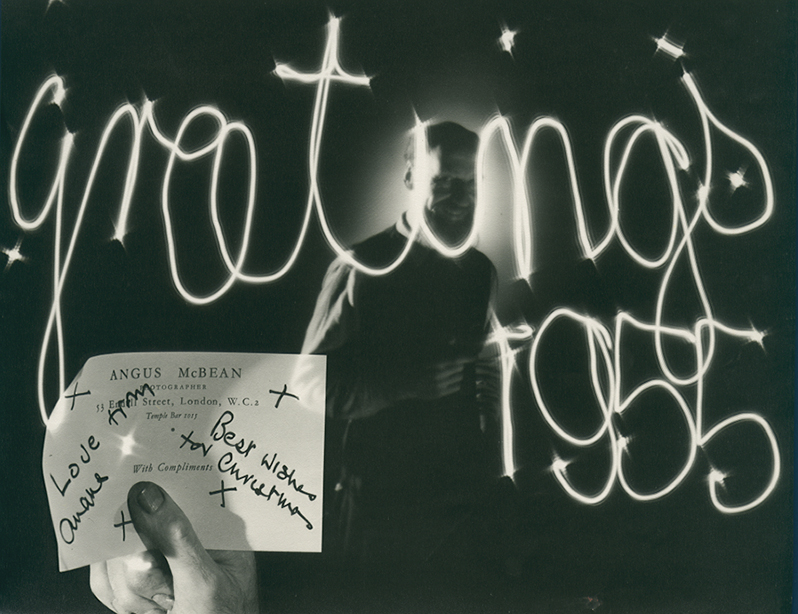 greetings
1955
ANGUS McBEAN
PHOTOGRAPHER
53 Endell Street, London, W.C.2
Temple Bar
With Compliments
Love from
Best wishes
for Christmas